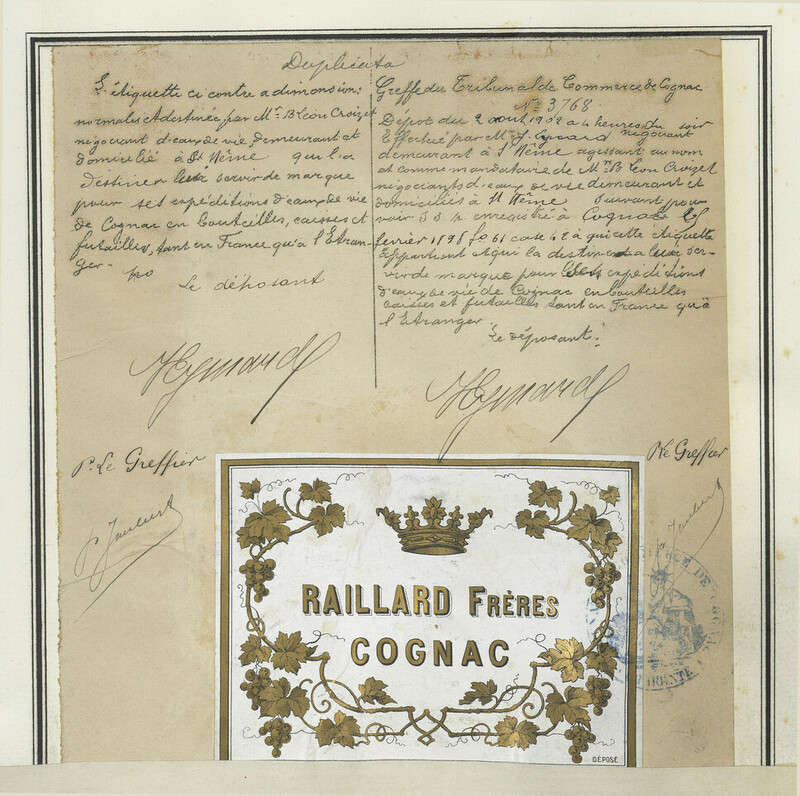 Duplicata
L'étiquette ci contre a dimensions
normales et destinée par Mr. B Léon Croizet
négociant d'eaux de vie, demeurant et
domicilié à St Même qui l'a
destiner servir de marque
pour ses expéditions d'eaux de vie
de Cognac en bouteilles, caisses et
futailles, tant en France qu'à l'Etran-
ger.
Le déposant
Pr Le Greffier
Greffe du Tribunal de Commerce de Cognac
No 3768
Dépôt du 2 aout 1902 a 4 heures du soir
Effectué par M. négociant
demeurant à St Même agissant au nom
et comme mandataire de Mr. B Léon Croizet
négociants d'eaux de vie demeurant et
domiciliés à St Même Suivant pou-
voir s.s.p. enregistré à Cognac le
février 1898 fo 61 case 42 à qui cette étiquette
appartient et qui la destine a ser-
vir de marque pour expéditions
d'eaux de vie de Cognac en bouteilles
caisses et futailles tant en France qu'à
l'Etranger
Le déposant.
Pr Le Greffier
RAILLARD FRÈRES
COGNAC
DÉPOSÉ